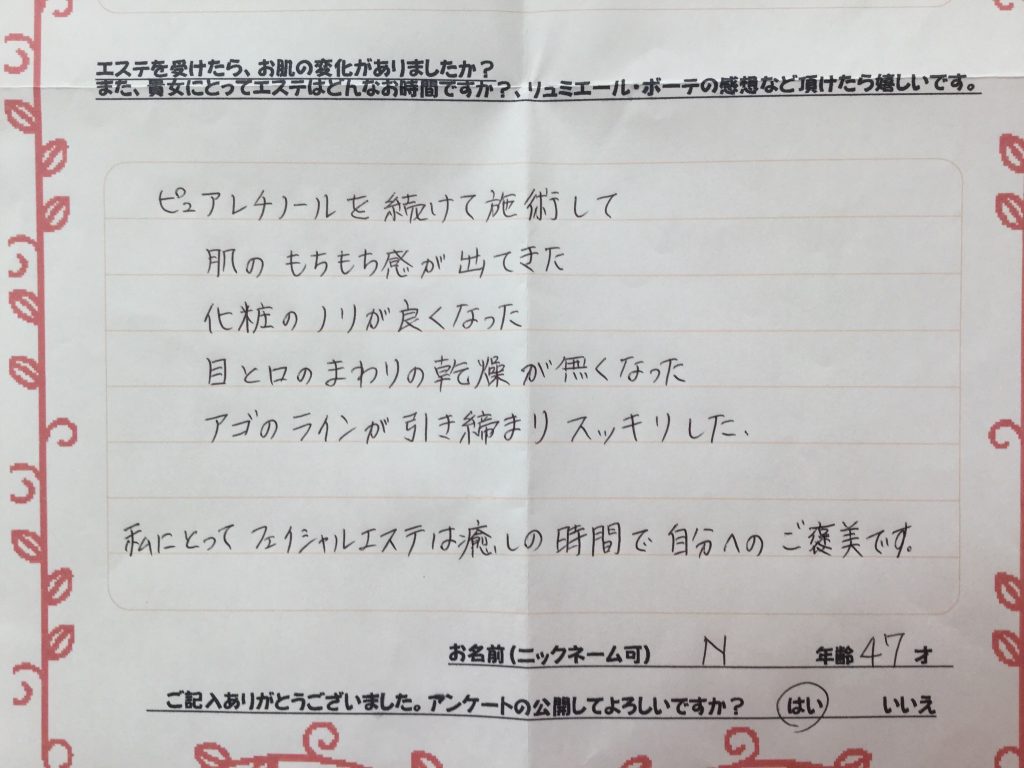 エステを受けたら、お肌の変化がありましたか？
また、貴女にとってエステはどんなお時間ですか？、リュミエール・ボーテの感想など頂けたら嬉しいです。
ピュアレチノールを続けて施術して
肌のもちもち感が出てきた
化粧のノリが良くなった
目と口のまわりの乾燥が無くなった
アゴのラインが引き締まりスッキリした、
私にとってフェイシャルエステは癒しの時間で自分へのご褒美です。
お名前（ニックネーム可） N 年齢 47 才
ご記入ありがとうございました。アンケートの公開してよろしいですか？ はい いいえ